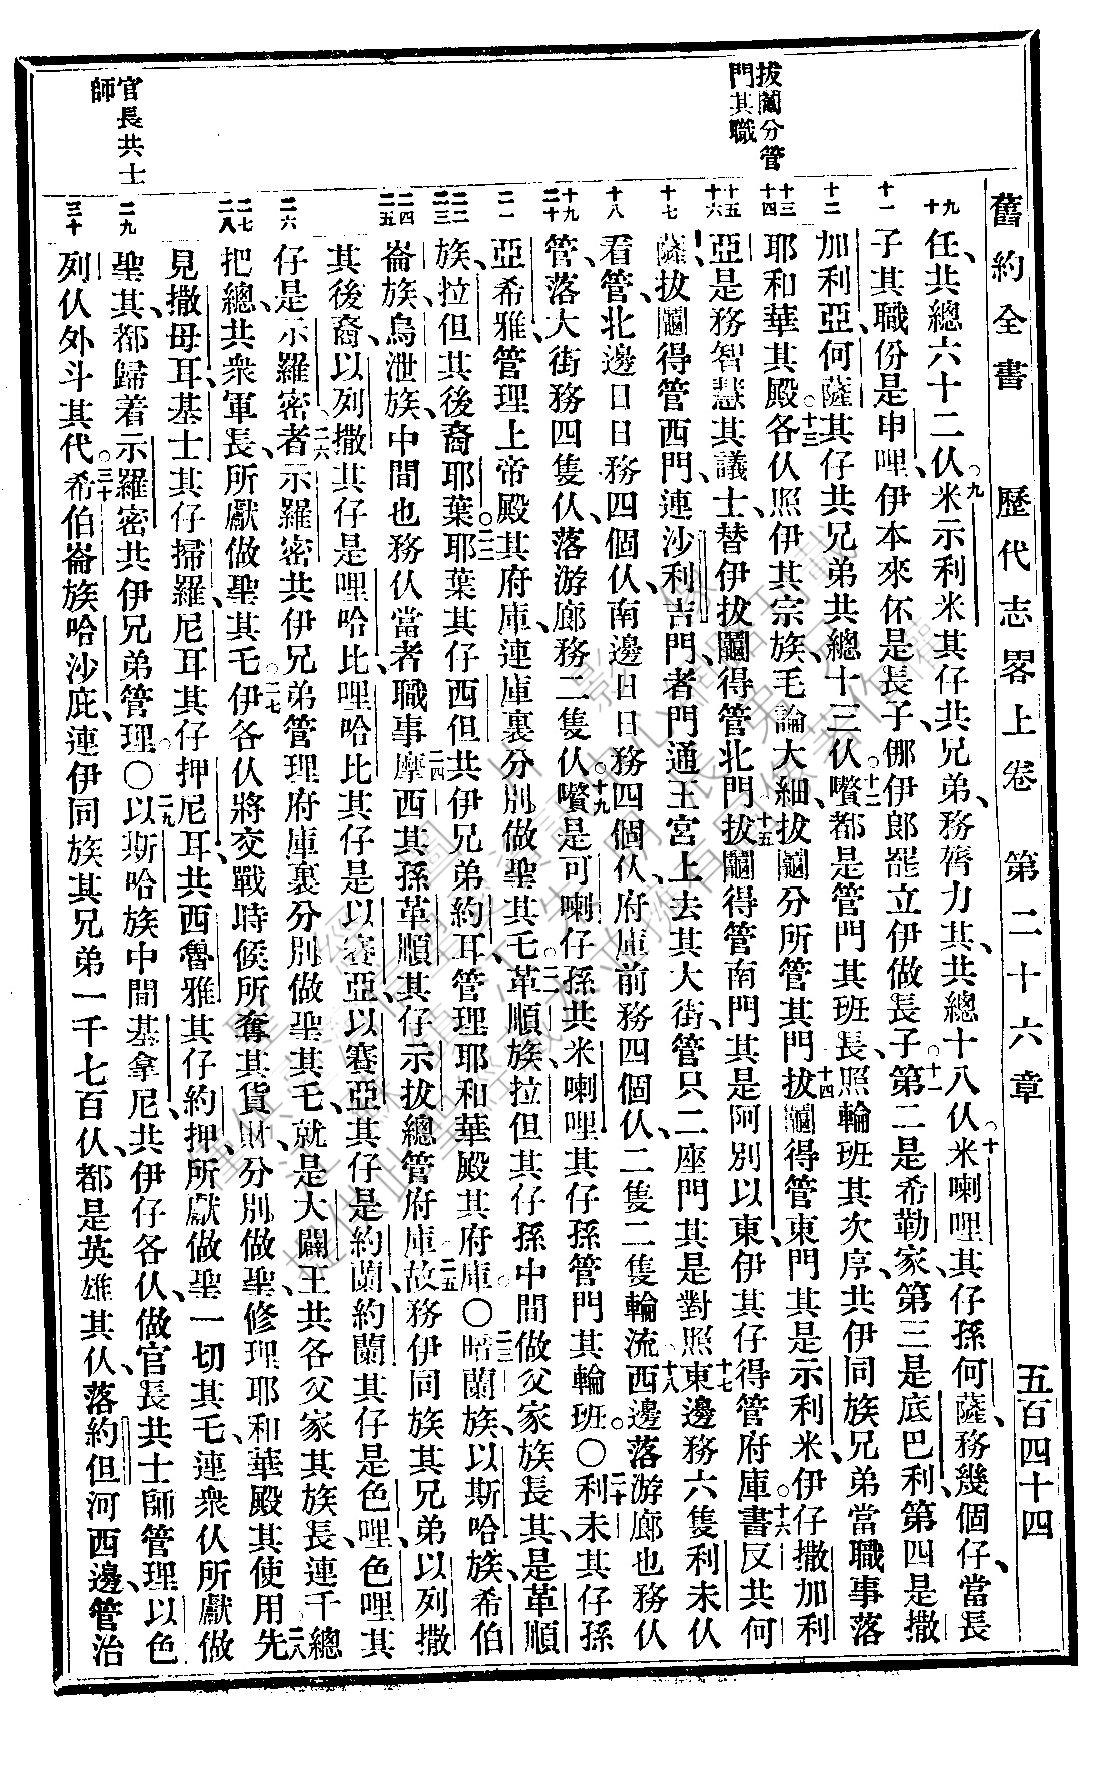 舊約全書 歷代志畧上卷 第二十六章 五百四十四
拔鬮分管
門其職
官長共士
師
任、共總六十二仈。○九米示利米其仔共兄弟、務膂力其、共總十八仈。○十米喇哩其仔孫何薩、務幾個仔、當長
子其職份是申哩、伊本來伓是長子、𨚫伊郎罷立伊做長子。○十一第二是希勒家、第三是底巴利、第四是撒
加利亞、何薩其仔共兄弟共總十三仈。○十二嚽都是管門其班長、照輪班其次序、共伊同族兄弟當職事落
耶和華其殿。○十三各仈照伊其宗族、乇論大細、拔鬮分所管其門。十四拔鬮得管東門其是示利米、伊仔撒加利
亞是務智慧其議士、替伊拔鬮得管北門。十五拔鬮得管南門其是阿別以東、伊其仔得管府庫。○十六書反共何
薩、拔鬮得管西門、連沙利吉門、者門通王宮上去其大街、管只二座門其是對照。十七東邊務六隻利未仈
看管、北邊日日務四個仈、南邊日日務四個仈、府庫前務四個仈、二隻二隻輪流。十八西邊落游廊也務仈
管、落大街務四隻仈、落游廊務二隻仈。○十九嚽是可喇仔孫共米喇哩其仔孫管門其輪班。○二十利未其仔孫
亞希雅管理上帝殿其府庫、連庫裏分別做聖其乇。○二一革順族、拉但其仔孫中間做父家族長其、是革順
族、拉但其後裔耶葉。○二二耶葉其仔西但共伊兄弟約耳、管理耶和華殿其府庫。○二三暗蘭族、以斯哈族、希伯
崙族、烏泄族、中間也務仈當者職事。二四摩西其孫革順其仔示拔、總管府庫。二五故務伊同族其兄弟以列撒
其後裔、以列撒其仔是哩哈比、哩哈比其仔是以賽亞、以賽亞其仔是約蘭、約蘭其仔是色哩、色哩其
仔是示羅密。○二六者示羅密共伊兄弟管理府庫裏分別做聖其乇、就是大闢王共各父家其族長、連千總
把總、共衆軍長、所獻做聖其乇。○二七伊各仈將交戰時候所奪其貨財、分別做聖、修理耶和華殿其使用。二八先
見撒母耳、基士其仔掃羅、尼耳其仔押尼耳、共西魯雅其仔約押、所獻做聖一切其乇、連衆仈所獻做
聖其、都歸着示羅密共伊兄弟管理。○二九以斯哈族中間基拿尼共伊仔各仈、做官長共士師、管理以色
列仈外斗其代。○三十希伯崙族哈沙庇、連伊同族其兄弟一千七百仈、都是英雄其仈、落約但河西邊、管治